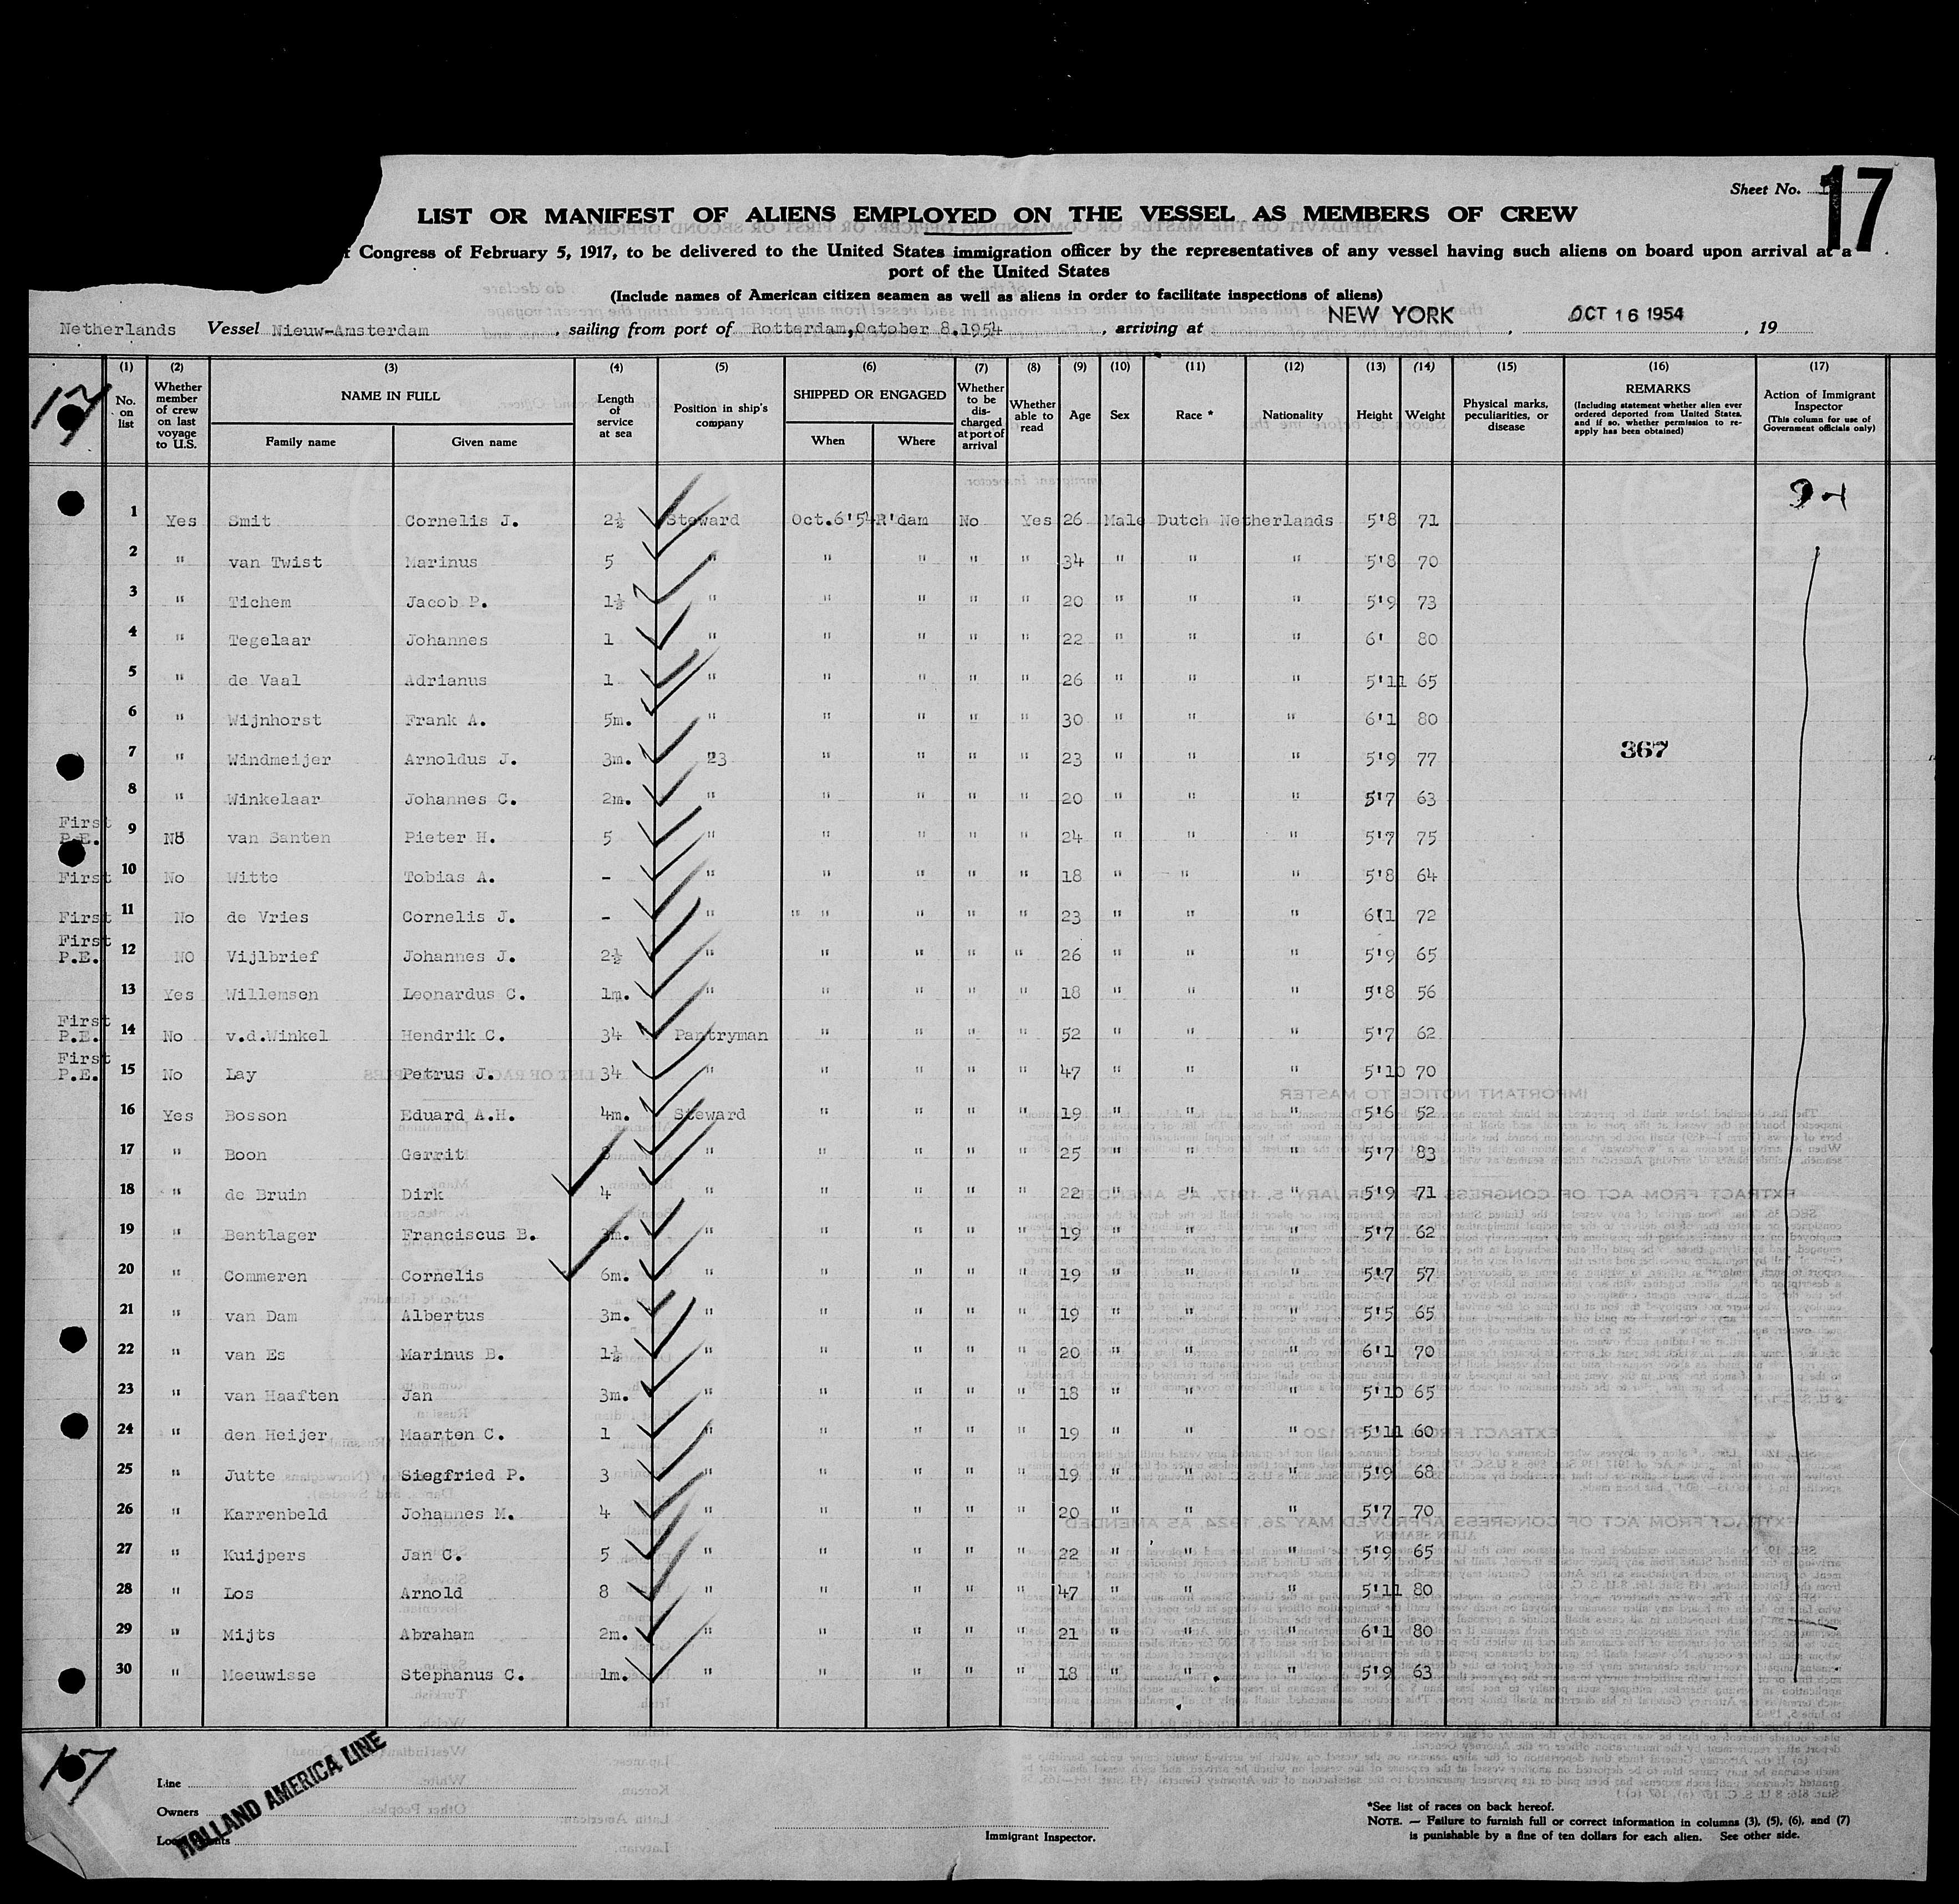 Sheet No.
17
LIST OR MANIFEST OF ALIENS EMPLOYED ON THE VESSEL AS MEMBERS OF CREW
Congress of February 5, 1917, to be delivered to the United States immigration officer by the representatives of any vessel having such aliens on board upon arrival at a
port of the United States
(Include names of American citizen seamen as well as aliens in order to facilitate inspections of aliens)
Netherlands Vessel Nieuw-Amsterdam, sailing from port of Rotterdam, October 8.1954, arriving at NEW YORK, OCT 16 1954, 19
17
(1) No. on list
(2) Whether member of crew on last voyage to U.S.
(3) NAME IN FULL Family name Given name
(4) Length of service at sea
(5) Position in ship's company
(6) SHIPPED OR ENGAGED When Where
(7) Whether to be discharged at port of arrival
(8) Whether able to read
(9) Age
(10) Sex
(11) Race *
(12) Nationality
(13) Height
(14) Weight
(15) Physical marks, peculiarities, or disease
(16) REMARKS (Including statement whether alien ever ordered deported from United States, and if so, whether permission to re-apply has been obtained)
(17) Action of Immigrant Inspector (This column for use of Government officials only)
1 Yes Smit Cornelis J. 2½ Steward Oct.6'54 R'dam No Yes 26 Male Dutch Netherlands 5'8 71
2 " van Twist Marinus 5 " " " " " 34 " " " 5'8 70
3 " Tichem Jacob P. 1½ " " " " " 20 " " " 5'9 73
4 " Tegelaar Johannes 1 " " " " " 22 " " " 6' 80
5 " de Vaal Adrianus 1 " " " " " 26 " " " 5'11 65
6 " Wijnhorst Frank A. 5m. " " " " " 30 " " " 6'1 80
7 " Windmeijer Arnoldus J. 3m. "23 " " " " 23 " " " 5'9 77 367
8 " Winkelaar Johannes C. 2m. " " " " " 20 " " " 5'7 63
First P.E. 9 No van Santen Pieter H. 5 " " " " " 24 " " " 5'7 75
First 10 No Witte Tobias A. - " " " " " 18 " " " 5'8 64
First 11 No de Vries Cornelis J. - " " " " " " 23 " " " 6'1 72
First P.E. 12 NO Vijlbrief Johannes J. 2½ " " " " " 26 " " " 5'9 65
13 Yes Willemsen Leonardus C. 1m. " " " " " 18 " " " 5'8 56
First P.E. 14 No v.d.Winkel Hendrik C. 34 Pantryman " " " " 52 " " " 5'7 62
First P.E. 15 No Lay Petrus J. 34 " " " " " 47 " " " 5'10 70
16 Yes Bosson Eduard A.H. 4m. Steward " " " " 19 " " " 5'6 52
17 " Boon Gerrit " " " " " 25 " " " 5'7 83
18 " de Bruin Dirk 4 " " " " " 22 " " " 5'9 71
19 " Bentlager Franciscus B. 3m. " " " " " 19 " " " 5'7 62
20 " Commeren Cornelis 6m. " " " " " 19 " " " 5'7 57
21 " van Dam Albertus 3m. " " " " " 19 " " " 5'5 65
22 " van Es Marinus B. 1½ " " " " " 20 " " " 6'1 70
23 " van Haaften Jan 3m. " " " " " 18 " " " 5'10 65
24 " den Heijer Maarten C. 1 " " " " " 19 " " " 5'11 60
25 " Jutte Siegfried P. 3 " " " " " 19 " " " 5'9 68
26 " Karrenbeld Johannes M. 4 " " " " " 20 " " " 5'7 70
27 " Kuijpers Jan C. 5 " " " " " 22 " " " 5'9 65
28 " Los Arnold 8 " " " " " 47 " " " 5'11 80
29 " Mijts Abraham 2m. " " " " " 21 " " " 6'1 80
30 " Meeuwisse Stephanus C. 1m. " " " " " 18 " " " 5'9 63
17
Line
Owners
HOLLAND AMERICA LINE
Immigrant Inspector.
*See list of races on back hereof.
NOTE. — Failure to furnish full or correct information in columns (3), (5), (6), and (7)
is punishable by a fine of ten dollars for each alien. See other side.